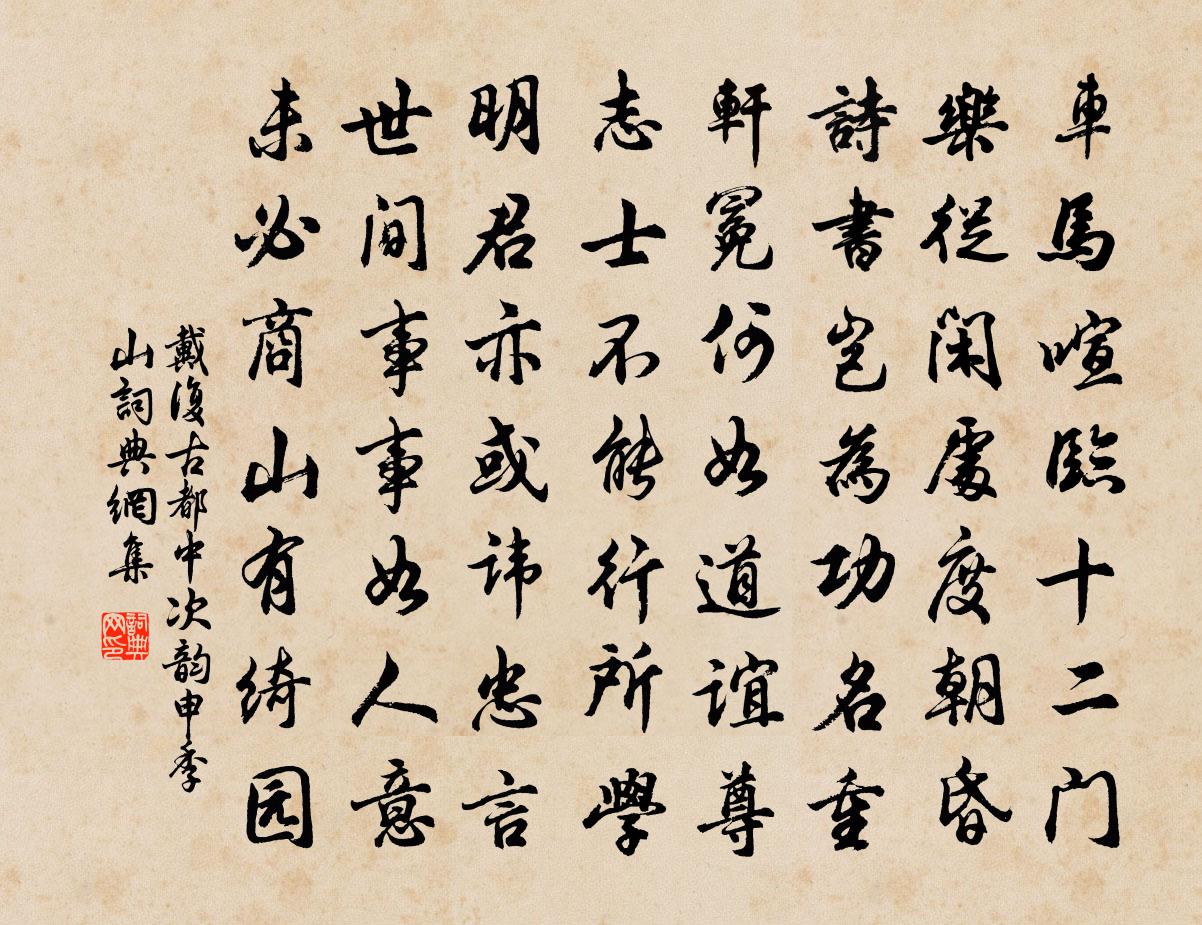 車馬喧臨十二门
樂從閑處度朝昏
詩書豈為功名重
軒冕何如道誼尊
志士不能行所學
明君亦或諱忠言
世间事事如人意
未必商山有绮园
戴復古都中次韵申季
山詞典網集
詞典网印